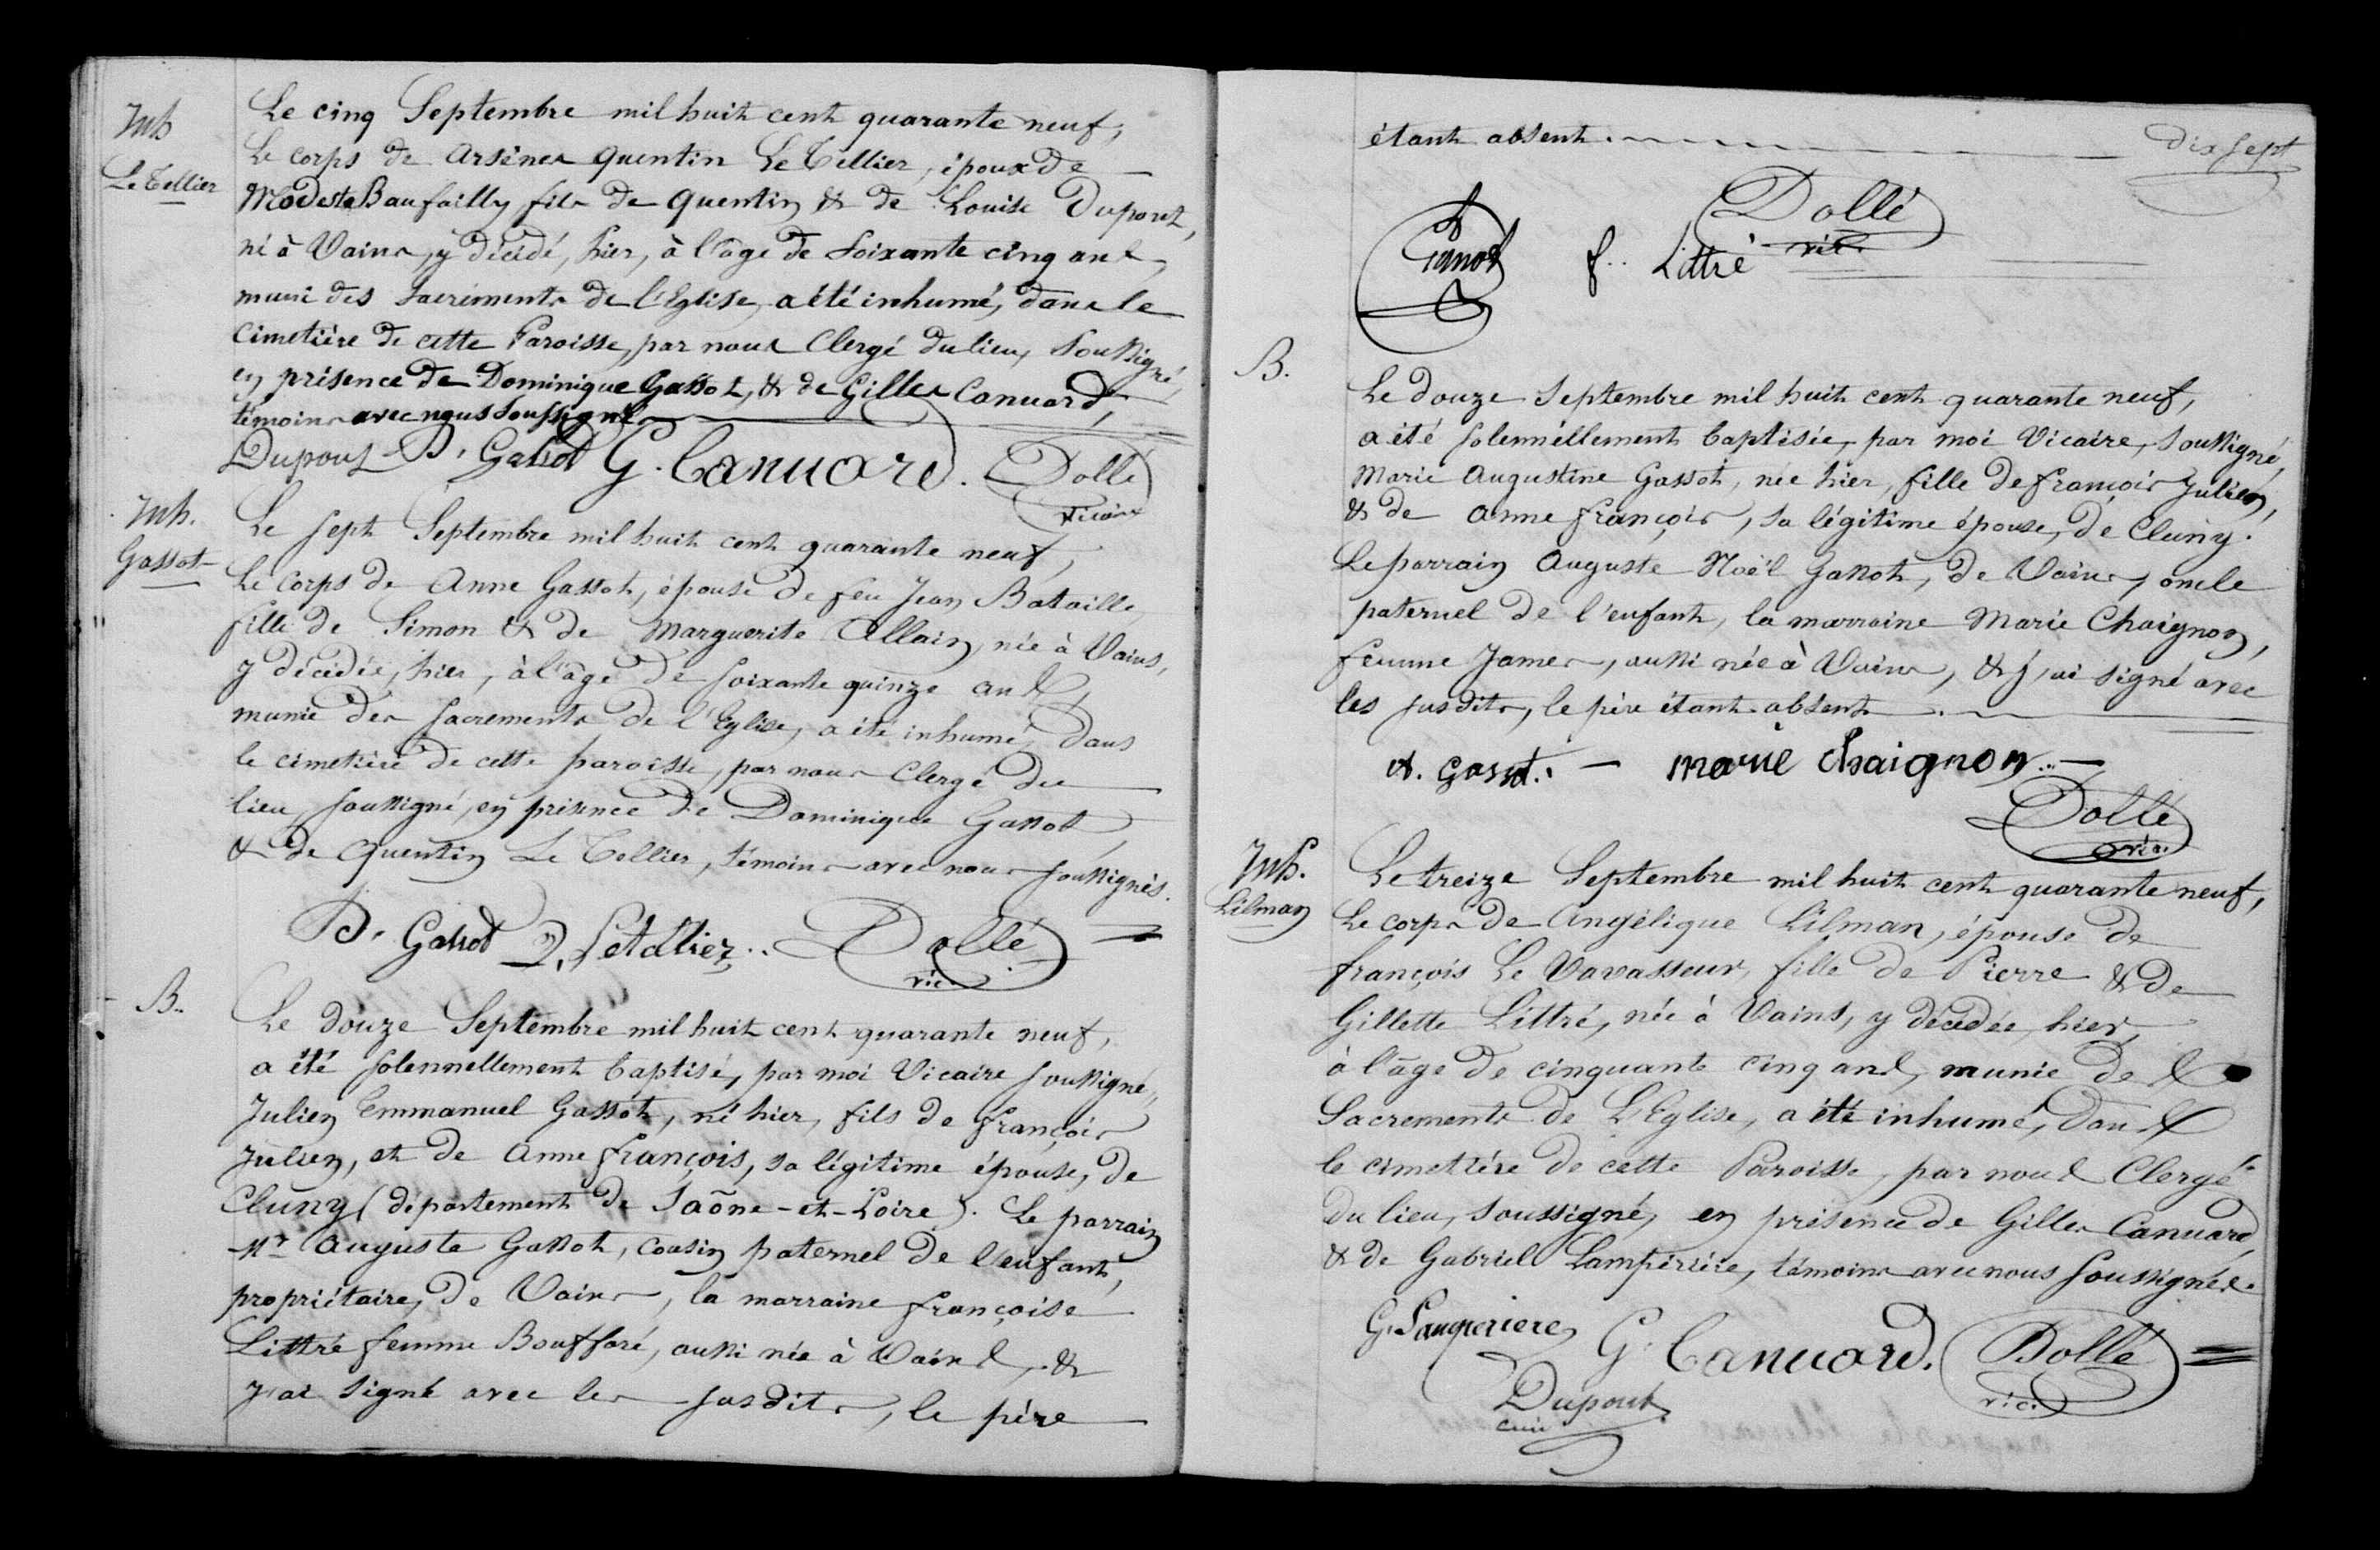 Inh
Le Tellier
Le cinq Septembre mil huit cent quarante neuf,
Le corps de Arsène Quentin Le Tellier, époux de
Modeste Baufailly fils de Quentin & de Louise Dupont,
né à Vains, y décédé, hier, à l'âge de soixante cinq ans,
muni des sacrements de l'Eglise, a été inhumé, dans le
Cimetière de cette Paroisse, par nous Clergé du lieu, soussigné,
en présence de Dominique Gassot, & de Gilles Canuard,
témoins avec nous soussignés
Dupont D. Gassot G. Canuard. Dollé
vicaire
Inh.
Gassot
Le sept Septembre mil huit cent quarante neuf,
Le corps de Anne Gassot, épouse de feu Jean Bataille,
fille de Simon & de Marguerite Allain, née à Vains,
y décédée, hier, à l'âge de soixante quinze ans,
munie des sacrements de l'Eglise, a été inhumé, dans
le cimetière de cette paroisse, par nous Clergé du
lieu, soussigné, en présence de Dominique Gassot
& de Quentin Le Tellier, témoins avec nous soussignés.
D. Gassot Q. Letellier.. Dollé
vic.
B.
Le douze Septembre mil huit cent quarante neuf,
a été solennellement baptisé, par moi Vicaire soussigné,
Julien Emmanuel Gassot, né hier, fils de François
Julien, et de Anne François, sa légitime épouse, de
Cluny (département de Saône-et-Loire). Le parrain
Mr Auguste Gassot, cousin paternel de l'enfant,
propriétaire, de Vains, la marraine Françoise
Littré femme Bouffaré, aussi née à Vains, &
j'ai signé avec les susdits, le père
étant absent.
dix sept
Dollé
vic.
f. Littré
B.
Le douze Septembre mil huit cent quarante neuf,
a été solennéllement baptisée, par moi Vicaire, soussigné,
Marie Augustine Gassot, née hier, fille de François Julien,
& de Anne François, sa légitime épouse, de Cluny.
Le parrain Auguste Noël Gassot, de Vains, oncle
paternel de l'enfant, la marraine Marie Chaignon,
femme James, aussi née à Vains, & j'ai signé avec
les susdits, le père étant absent.
A. Gassot. - Marie Chaignon.. -
Dollé
vic.
Inh.
Lilman
Le treize Septembre mil huit cent quarante neuf,
Le corps de Angélique Lilman, épouse de
François Le Vavasseur, fille de Pierre & de
Gillette Littré, née à Vains, y décédée, hier,
à l'âge de cinquante cinq ans, munie des
Sacrements de L'Eglise, a été inhumé, dans
le cimetière de cette Paroisse, par nous Clergé
du lieu, soussigné, en présence de Gilles Canuard,
& de Gabriel Lampérière, témoins avec nous soussignés.
G. Lamperiere G. Canuard. Dollé
vic.
Dupont
curé